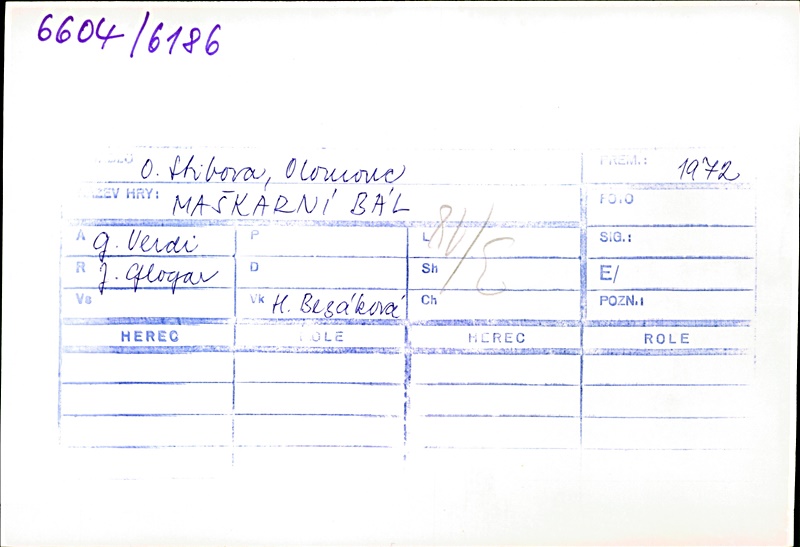 6604/6186
O. Stibora, Olomouc PREM.: 1972
ZEV HRY: MAŠKARNÍ BÁL FOTO
A G. Verdi P L SIG.:
R J. Glogar D Sh E/
Vs Vk H. Bezáková Ch POZN.:
HEREC ROLE HEREC ROLE